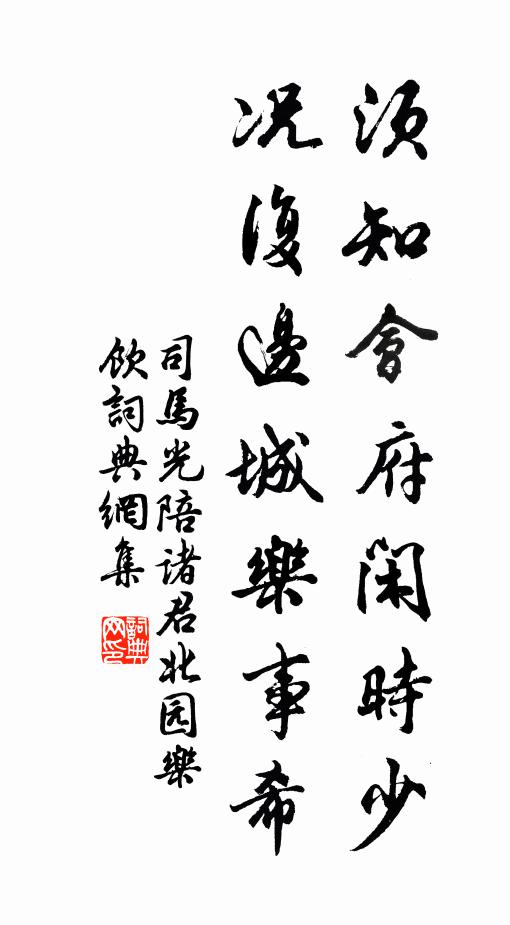 須知會府閑時少
况復邊城樂事希
司馬光陪諸君北园樂
飲詞典網集
詞典
网印